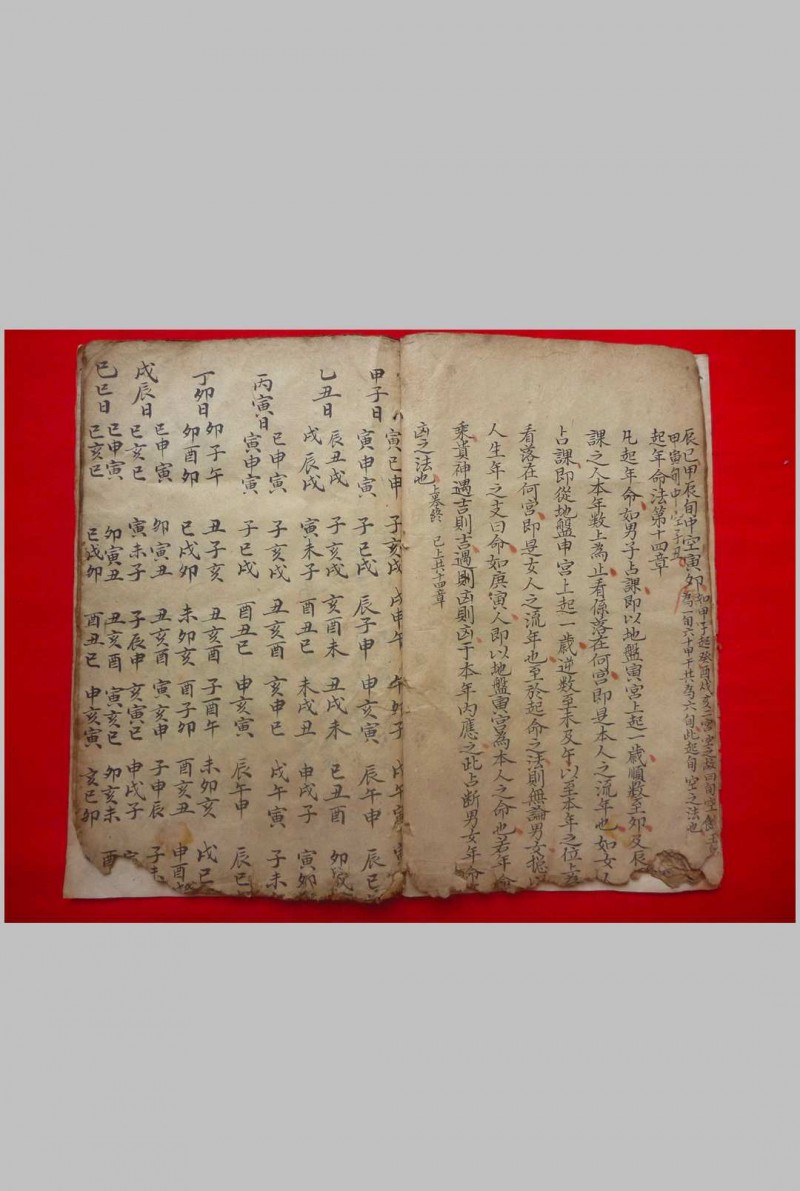 辰巳甲辰旬中空寅卯
甲寅旬中空子丑
如甲子起癸酉戌亥二宮空之故曰旬空
為一旬六十甲子共為六旬此起旬空之法也
起年命法第十四章
凡起年命如男子占課即以地盤寅宮上起一歲順數至卯及辰
課之人本年數上為止看係落在何宮即是本人之流年也如女人
占課即從地盤申宮上起一歲逆數至未及午以至本年之位上
看落在何宮即是女人之流年也至於起命之法則無論男女
人生年之支曰命如庚寅人即以地盤寅宮為本人之命也若年命
乘貴神遇吉則吉遇凶則凶于本年內應之此占斷男女年命
凶之法也
上卷終 已上共十四章
寅巳申 子亥戌 戌申午 午卯子 戌午寅
甲子日 寅申寅 子巳戌 辰子申 申亥寅 辰午申 辰巳
乙丑日 辰丑戌 子亥戌 亥酉未 丑戌未 巳丑酉 卯
戌辰戌 寅未子 酉丑巳 未戌丑 申戌子 寅卯
丙寅日 巳申寅 子亥戌 丑亥酉 亥申巳 戌午寅 子未
寅申寅 子巳戌 酉丑巳 申亥寅 辰午申 辰巳
丁卯日 卯子午 丑子亥 丑亥酉 子酉午 未卯亥 戌巳
卯酉卯 巳戌卯 未卯亥 酉子卯 酉亥丑 申酉
戊辰日 巳申寅 卯寅丑 丑亥酉 寅亥申 子申辰 子未
巳亥巳 寅未子 子辰申 亥寅巳 申戌子
己巳日 巳申寅 卯寅丑 丑亥酉 寅亥巳 卯亥未 酉
巳亥巳 巳戌卯 酉丑巳 申亥寅 亥巳卯